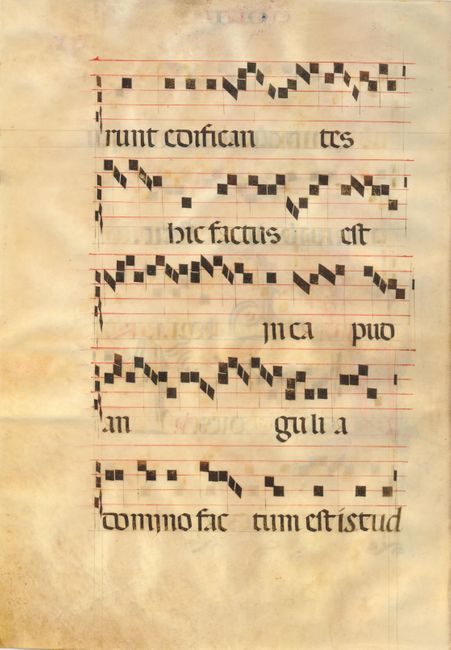 runt edifican tes
hic factus est
in ca pud
an guli a
domino fac tum est istud